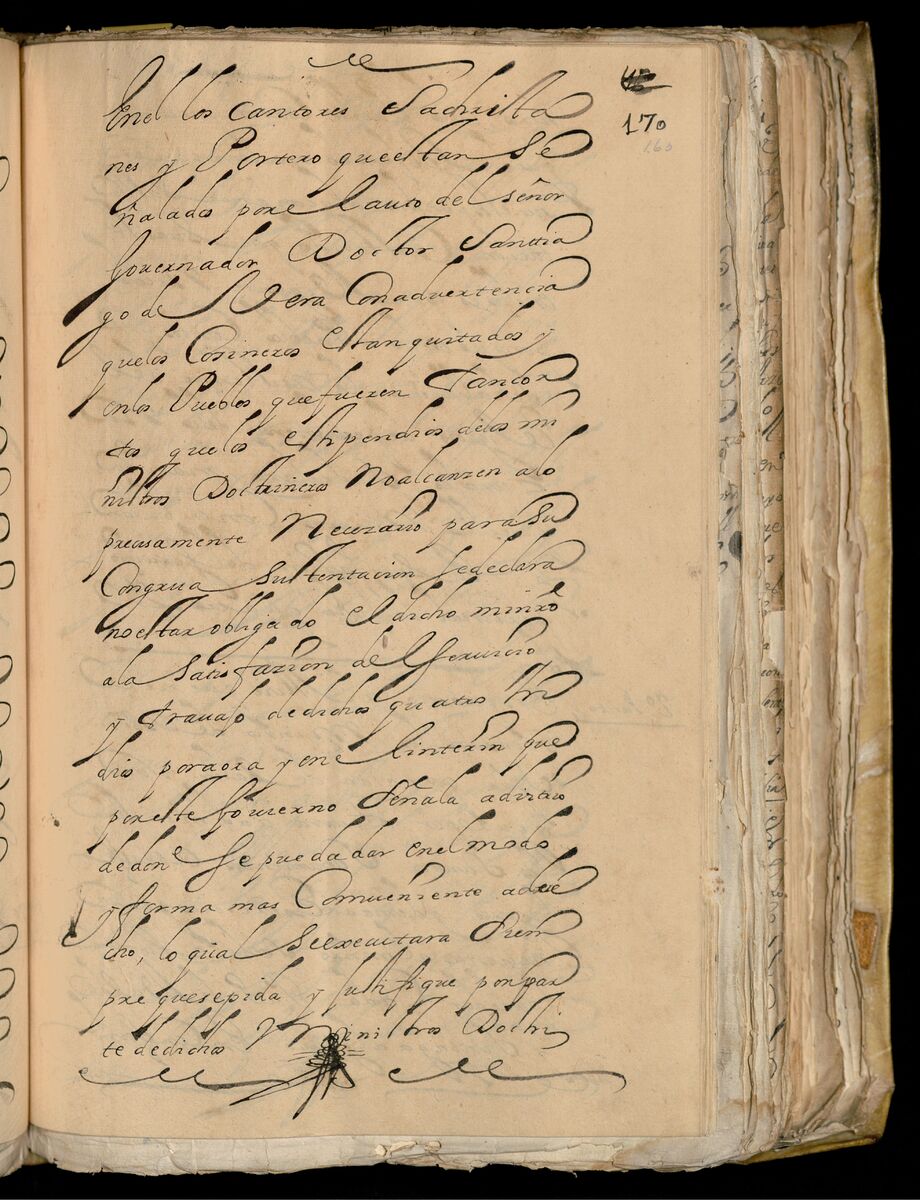 170
160
En el los Cantores Sachrista
nes y Portero que estan Se
ñalados por el auto del señor
Governador Doctor Santtia
go de Vera Con advertencia
que los Cosineros estan quitados y
en los Pueblos que fueren Tan cor
tos que los estipendios de los mi
nistros Doctrineros No alcanzen a lo
precisamente Necezario para su
Congrua sustentacion se declara
no estar obligado el dicho minrô
a la satisfazion del servicio
y travajo de dichos quatro Yn
dios por aora y en el interin que
por este Govierno Señala adictrio
de donê se pueda dar en el modo
y forma mas Conveniente a dre
cho, lo qúal se executara siem
pre que se pida y justifique por par
te de dichos Ministros Doctri